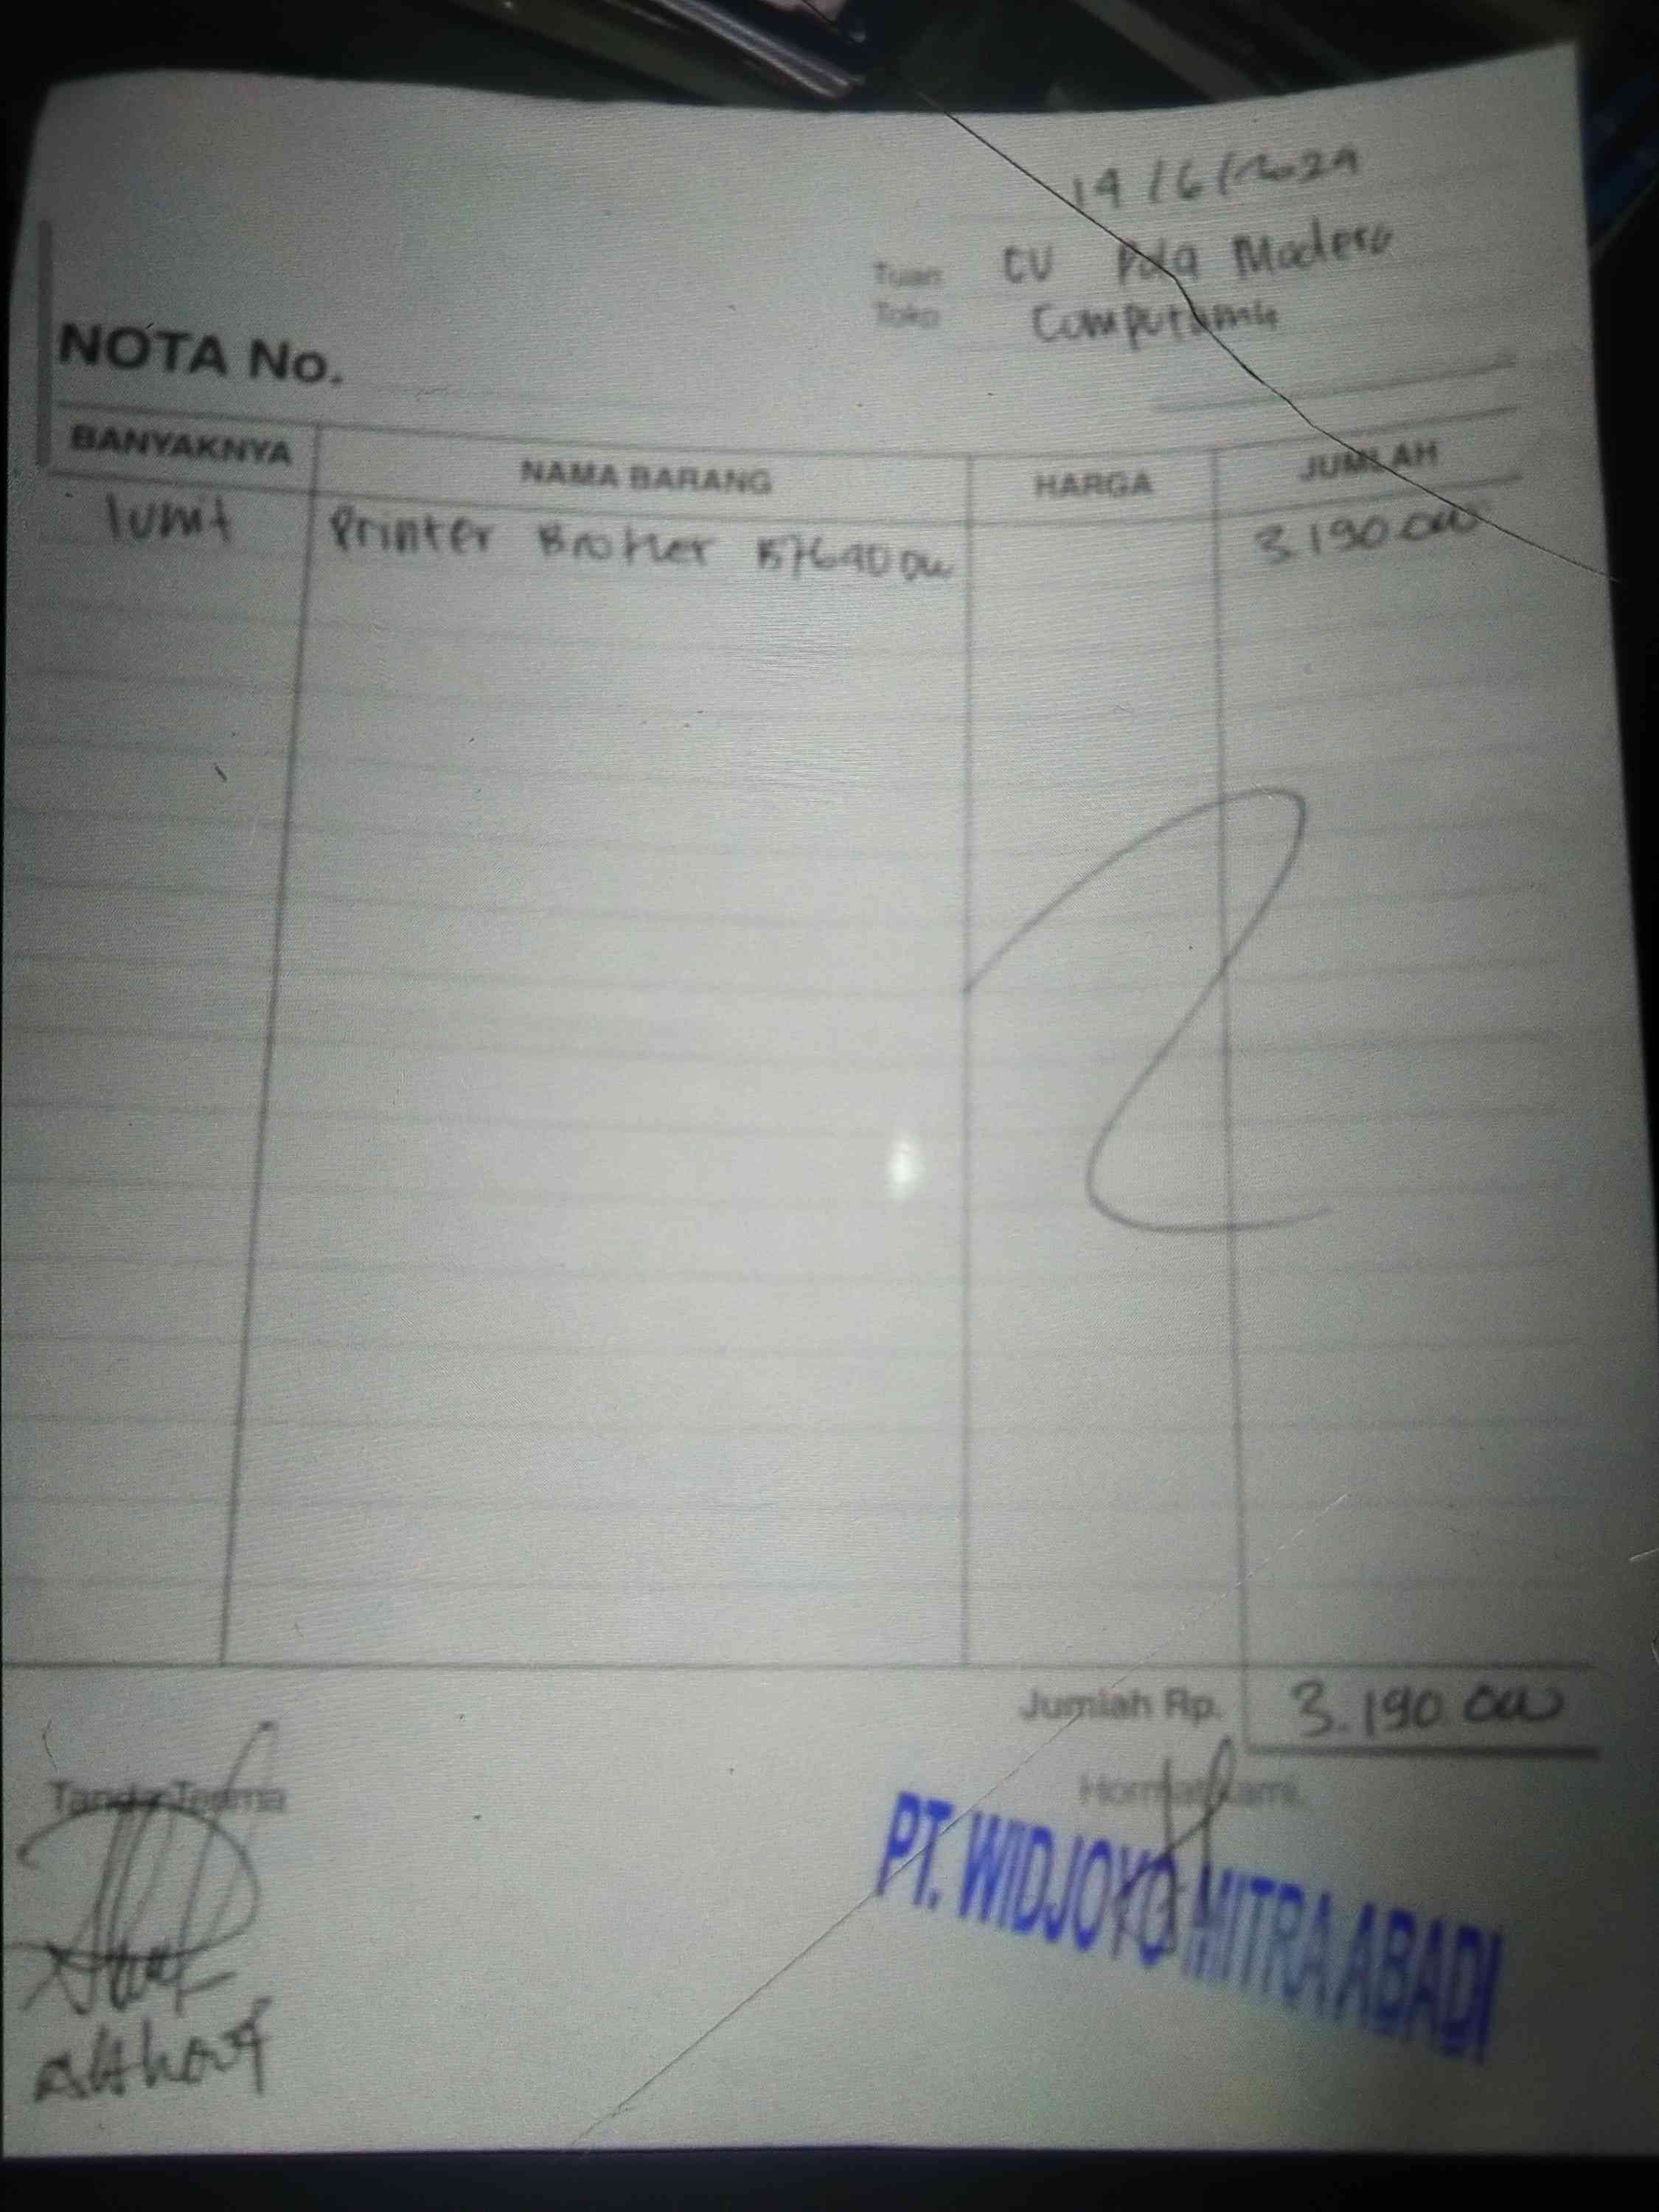 19/6/2024
Tuan CV Pola Madera
Toko
NOTA No.
BANYAKNYA NAMA BARANG HARGA JUMLAH
1 unit Printer Brother 3.190.000
Jumlah Rp. 3.190.000
Tanda Terima Hormat kami,
PT. WIDJOYO MITRA ABADI